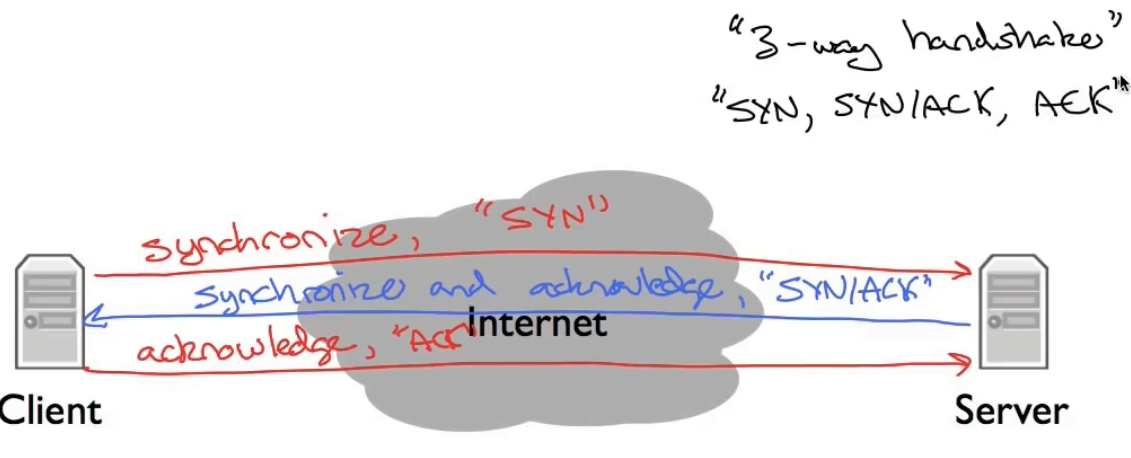 "3-way handshake"
"SYN, SYN/ACK, ACK"
synchronize, "SYN"
synchronize and acknowledge, "SYN/ACK"
internet
acknowledge, "ACK"
Client
Server